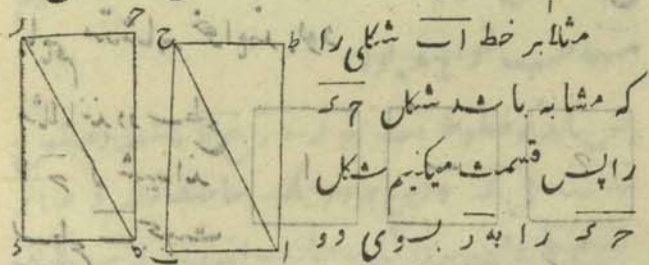 مثلا بر خط اب شکلی را
که مشابه باشد شکل حء
را پس قسمت میکنیم شکل
حء را به ر بسوی دو
ر ح ح ط
ء ه ب ا